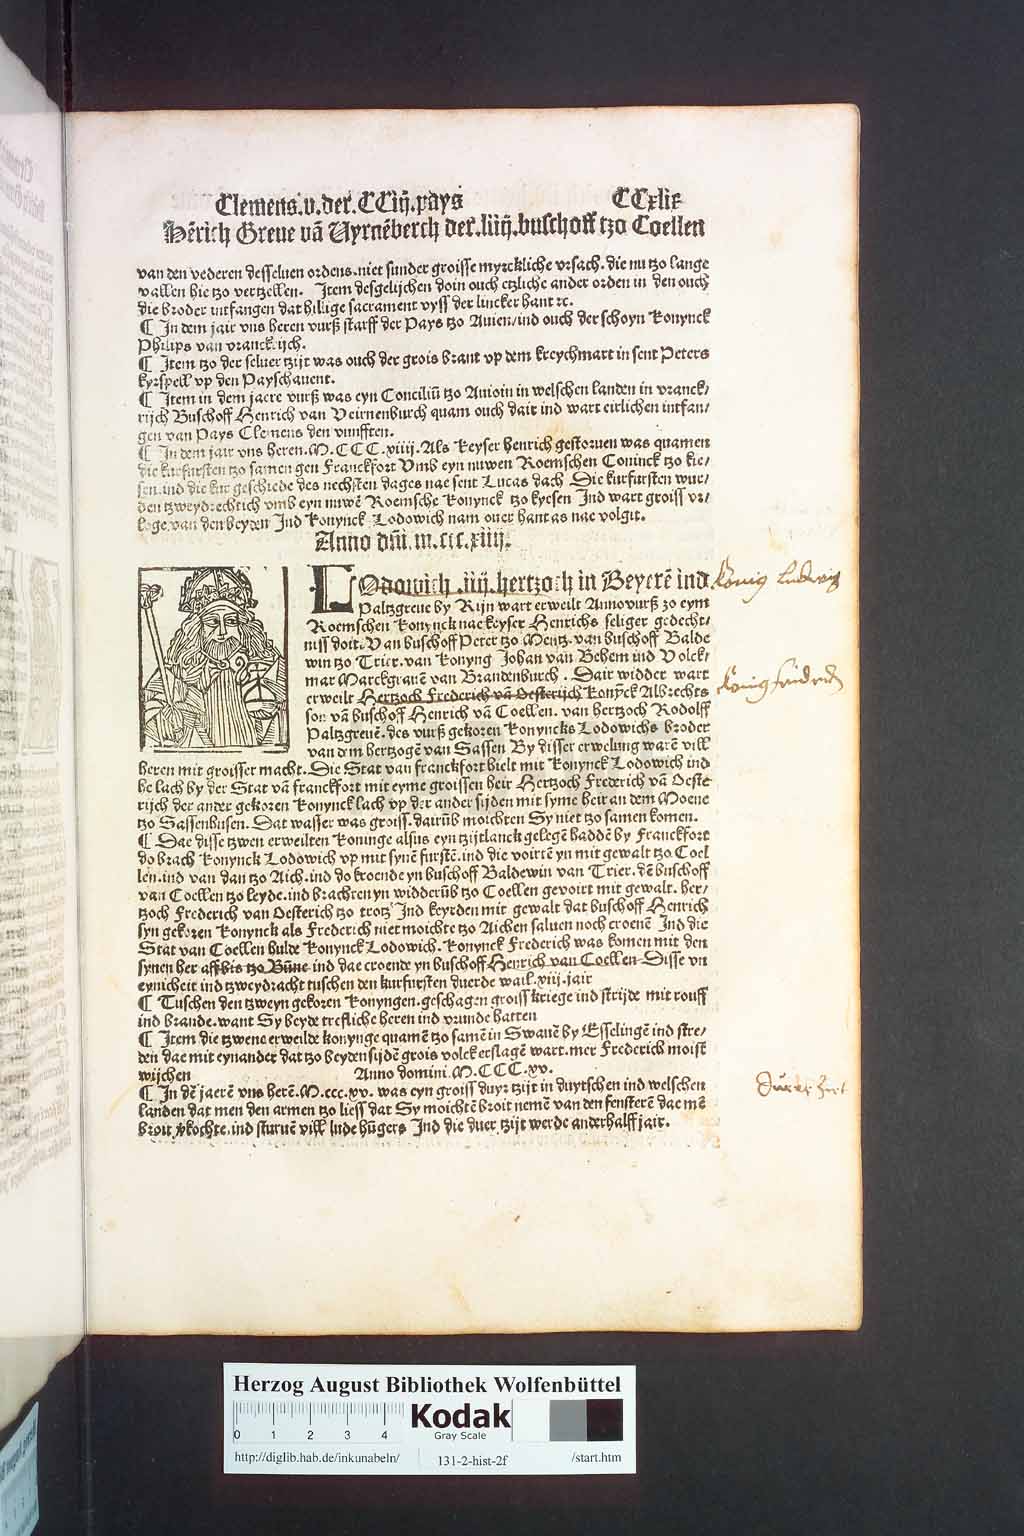 Clemens.v.der.CCiij.pays CCxlix
Hērich Greue vā Vyrnēberch der.liiij.buschoff tzo Coellen
van den vederen desseluen ordens.niet sunder groisse myrckliche vrsach.die nu tzo lange
vallen hie tzo vertzellen. Item desgelijchen doin ouch etzliche ander orden in den ouch
die broder intfangen dat hillige sacrament vyss der lincker hant rc.
¶ In dem jair vns heren vurß starff der Pays tzo Auion/ind ouch der schoyn Konynck
Philips van vranckrijch.
¶ Item tzo der seluer tzijt was ouch der grois brant vp dem kreychmart in sent Peters
kyrspell vp den Payschauent.
¶ Item in dem jaere vurß was eyn Conciliū tzo Auioin in welschen landen in vranck/
rijch Buschoff Henrich van Veirnenburch quam ouch dair ind wart eirlichen intfan/
gen van Pays Clemens den vunfften.
¶ In dem jair vns heren.M.CCC.xiiij.Als Keyser henrich gestoruen was quamen
die kurfursten tzo samen gen Franckfort Vmb eyn nuwen Roemschen Coninck tzo kie/
sen.ind die kur geschiede des nechsten dages nae sent Lucas dach Die kurfursten wur/
den tzweydrechtich vmb eyn nuwē Roemsche Konynck tzo kyesen Ind wart groiss vr/
loge van den beyden Ind Konynck Lodowich nam ouer hant as nae volgt.
Anno dñi.m.ccc.xiiij.
LOdowich .iiij.hertzoch in Beyerē ind
Paltzgreue by Rijn wart erweilt Anno vurß zo eym
Roemschen Konynck nae keyser Henrichs seliger gedecht/
niss doit.Van buschoff Peter tzo Mentz.van buschoff Balde
win tzo Trier.van Konyng Johan van Behem ind Volck/
mar Marckgrauē van Brandenburch. Dair widder wart
erweilt Hertzoch Frederich vā Oesterijch Konȳck Albrechts
son vā buschoff Henrich vā Coellen. van hertzoch Rodolff
Paltzgreuē.des vurß gekoren Konyncks Lodowichs broder
van dem hertzogē van Sassen By disser erwelung warē vill
heren mit groisser macht.Die Stat van franckfort hielt mit Konynck Lodowich ind
he lach by der Stat vā franckfort mit eyme groissen heir Hertzoch Frederich vā Oeste
rijch der ander gekoren Konynck lach vp der ander sijden mit syme heir an dem Moene
tzo Sassenhusen. Dat wasser was groiss.dairūb moichten Sy niet tzo samen komen.
¶ Dae disse tzwen erweilten Koninge alsus eyn tzijtlanck gelegē haddē by Franckfort
do brach Konynck Lodowich vp mit synē furstē.ind die voirtē yn mit gewalt tzo Coel
len.ind van dan tzo Aich.ind do kroende yn buschoff Baldewin van Trier.dē buschoff
van Coellen tzo leyde.ind brachten yn widderūb tzo Coellen gevoirt mit gewalt. her/
tzoch Frederich van Oesterich tzo trotz Ind keyrden mit gewalt dat buschoff Henrich
syn gekoren Konynck als Frederich niet moichte tzo Aichen saluen noch croenē Ind die
Stat van Coellen hulde Konynck Lodowich.Konynck Frederich was komen mit den
synen her aff bis tzo Būne ind dae croende yn buschoff Henrich van Coellen Disse vn
eynicheit ind tzweydracht tuschen den kurfursten duerde wail.viij.jair
¶ Tuschen den tzweyn gekoren Konyngen.geschagen groiss kriege ind strijde mit rouff
ind brande.want Sy beyde trefliche heren ind vrunde hatten
¶ Item die tzwene erweilde konynge quamē tzo samē in Swauē by Esselingē ind stre/
den dae mit eynander dat tzo beyden sijdē grois volck erslagē wart.mer Frederich moist
wijchen Anno domini.M.CCC.xv.
¶ In dē jaerē vns herē.M.ccc.xv. was eyn groiss duyr tzijt in duytschen ind welschen
landen dat men den armen tzo liess dat Sy moichtē broit nemē van den fensterē dae mē
broit vkochte.ind sturuē vill lude hūgers Ind die duer tzijt werde anderhalff jair.
König Ludwig
König Fridrich
Herzog August Bibliothek Wolfenbüttel
Kodak
Gray Scale
0 1 2 3 4
http://diglib.hab.de/inkunabeln/ 131-2-hist-2f /start.htm